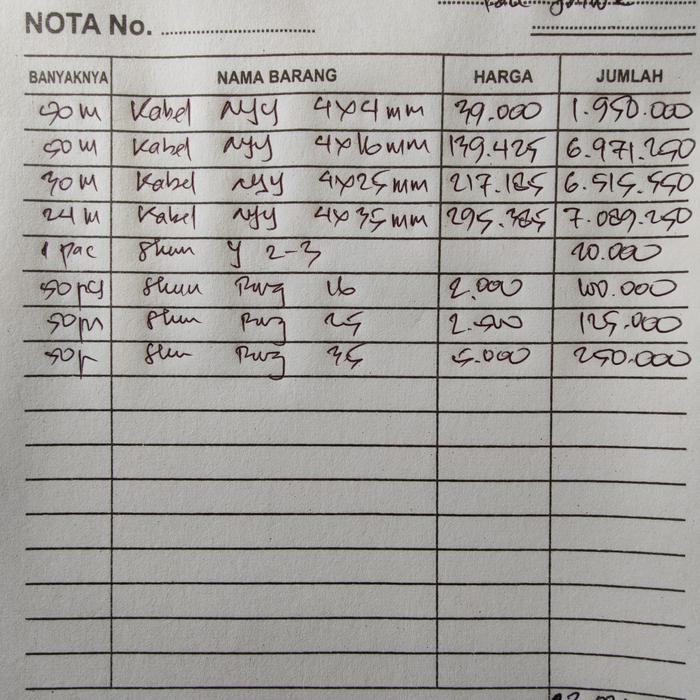 NOTA No.
BANYAKNYA NAMA BARANG HARGA JUMLAH
50 m Kabel NYY 4x4 mm 39.000 1.950.000
50 m Kabel NYY 4x16 mm 139.425 6.971.250
30 m Kabel NYY 4x25 mm 217.185 6.515.550
24 m Kabel NYY 4x35 mm 295.385 7.089.250
1 pac Skun Y 2-3 20.000
50 pcs Skun Ring 16 2.000 100.000
50 Skun Ring 25 2.500 125.000
50 Skun Ring 35 5.000 250.000